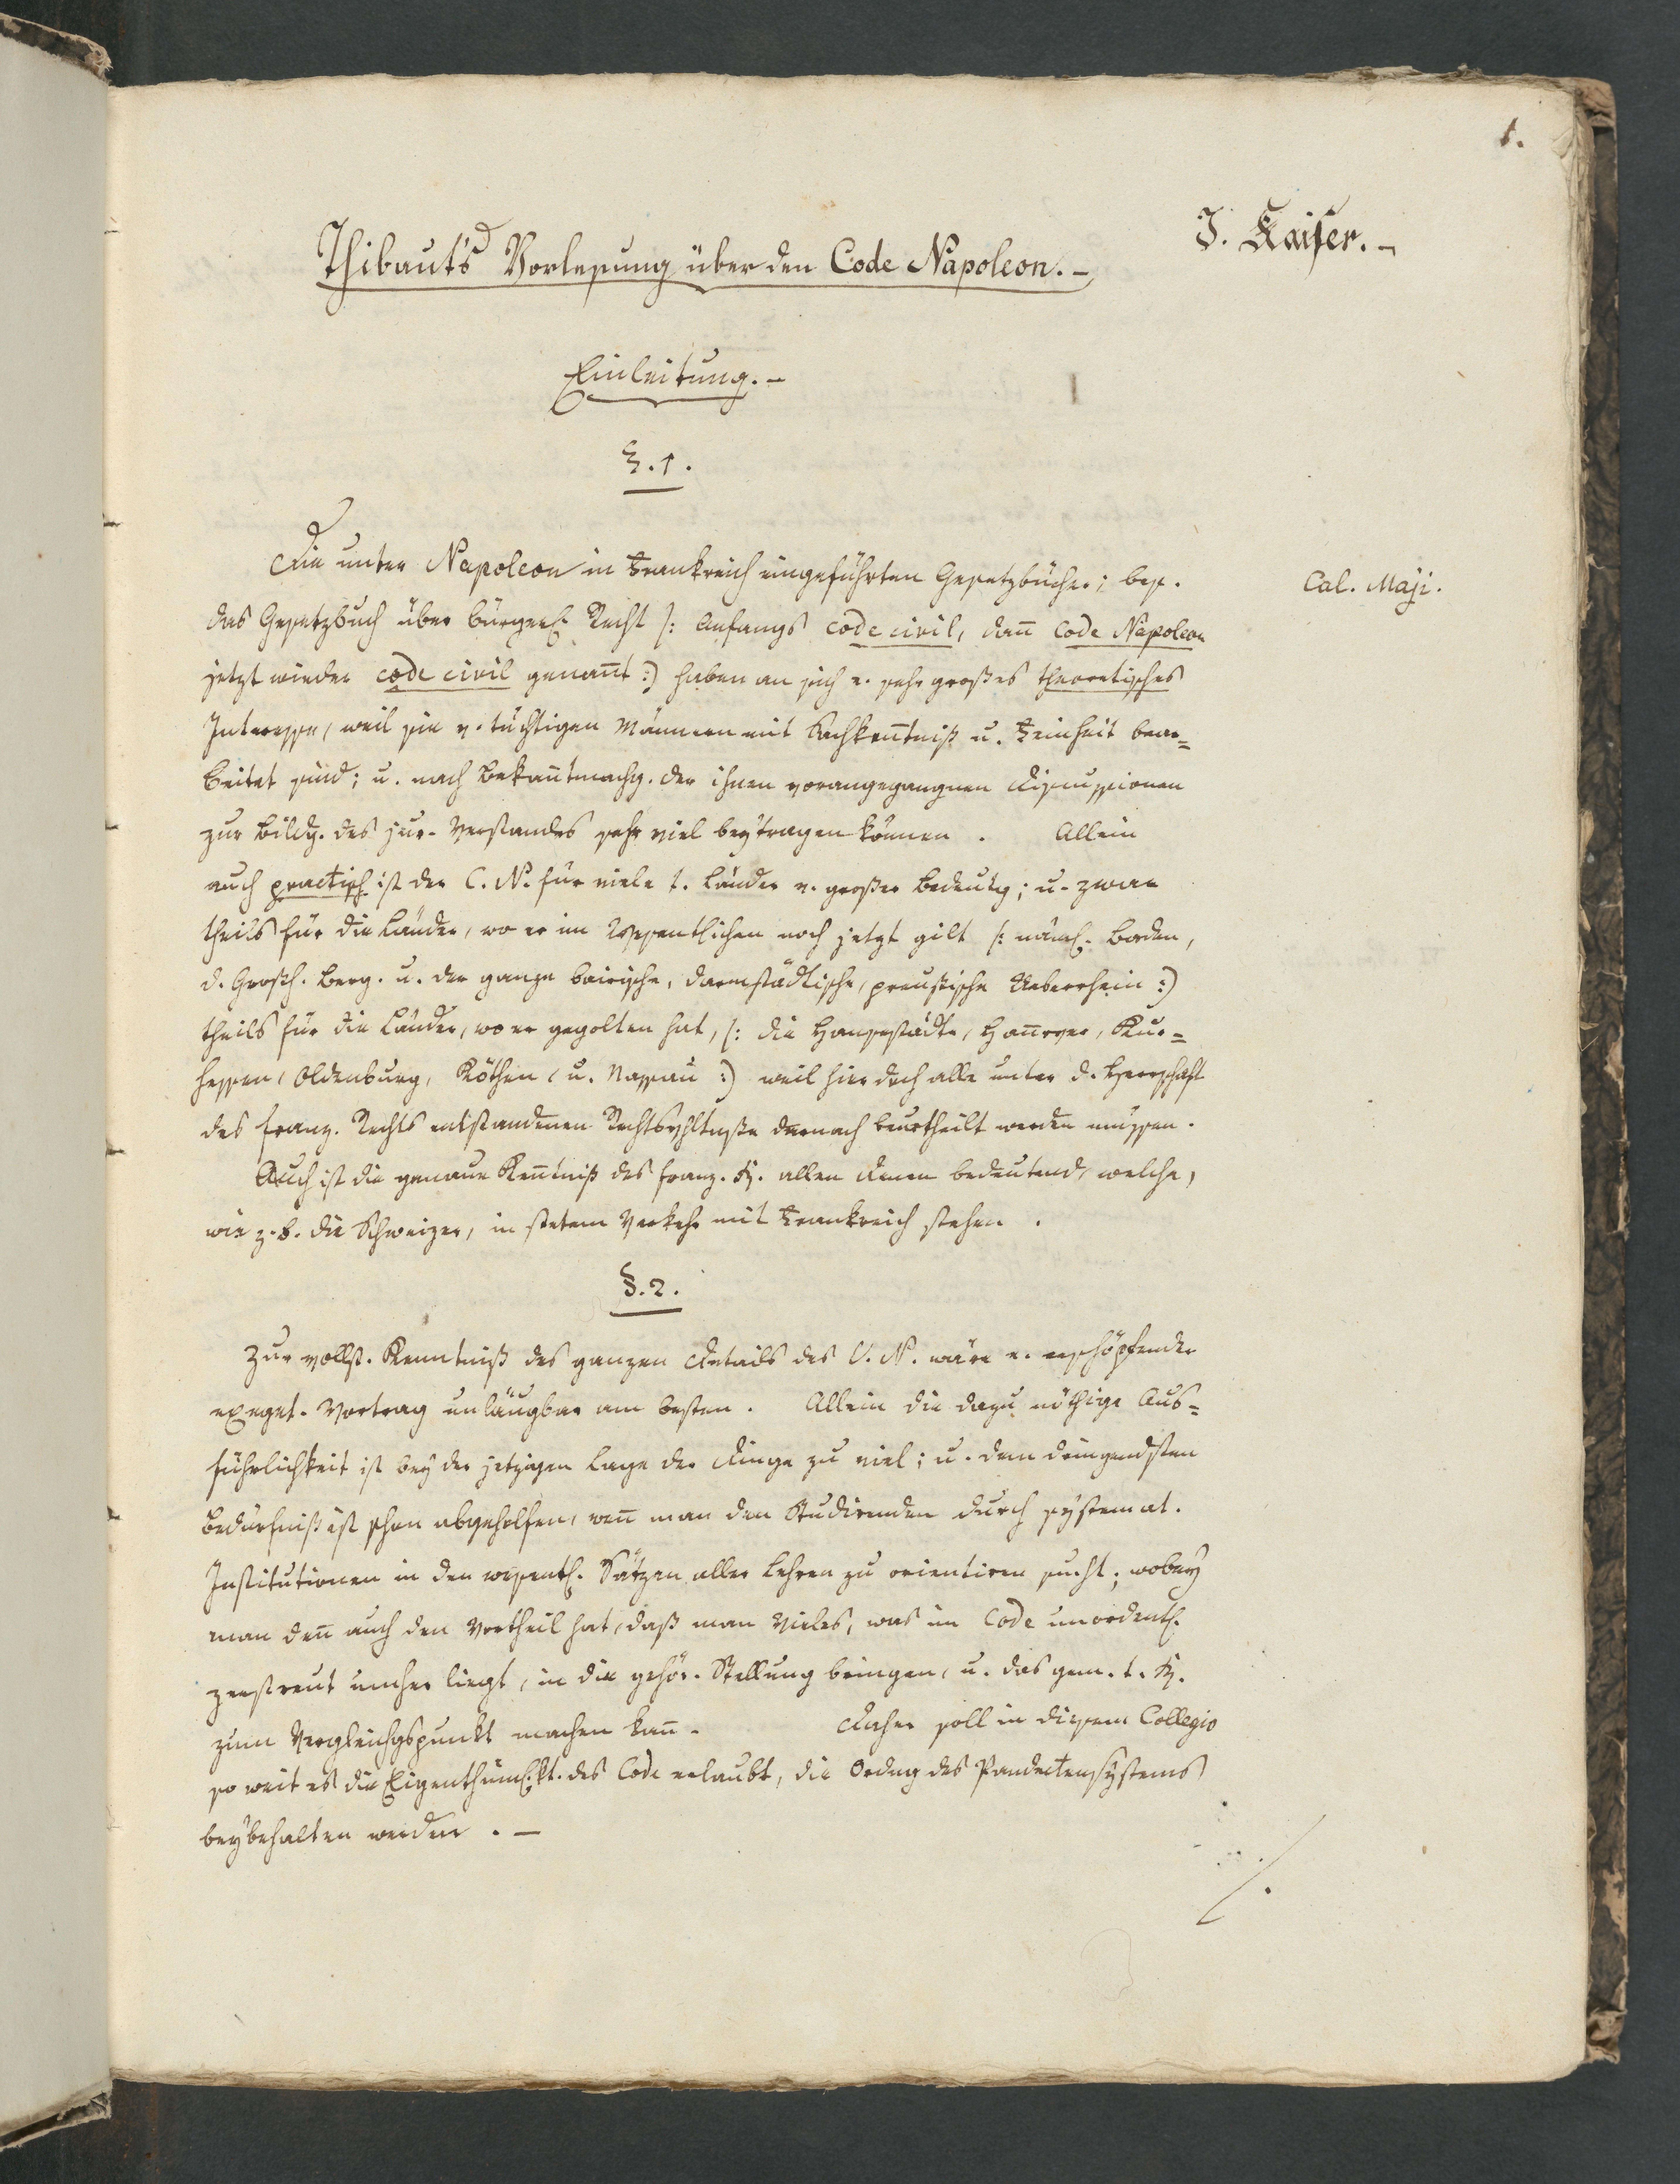 1.
J. Kaiser. –
Thibaut's Vorlesung über den Code Napoleon. –
Einleitung. –
§. 1.
Die unter Napoleon in Frankreich eingeführten Gesetzbücher; bes.
Cal. Maji.
das Gesetzbuch über bürgerl. Recht /: Anfangs code civil, dañ Code Napoleon
jetzt wieder code civil genañt :/ haben an sich e. sehr großes theoretisches
Interesse, weil sie v. tüchtigen Männern mit Sachkeñtniß u. Feinheit bear=
beitet sind; u. nach Bekañtmachg. der ihnen vorangegangnen Discussionen
zur Bildg. des jur. Verstandes sehr viel beytragen können. Allein
auch practisch ist der C. N. für viele t. Länder v. großer Bedeutg; u. zwar
theils für die Länder, wo er im Wesentlichen noch jetzt gilt /: näml. Baden,
d. Großh. Berg. u. der ganze bairische, darmstädtische, preußische Ueberrhein :/
theils für die Länder, wo er gegolten hat, /: die Hansestädte, Hañover, Kur=
hessen, Oldenburg, Köthen, u. Nassau :/ weil hier doch alle unter d. Herrschaft
des franz. Rechts entstandenen Rechtsvhltnße darnach beurtheilt werden müssen.
Auch ist die genaue Keñtniß des franz. R. allen denen bedeutend, welche,
wie z. B. die Schweizer, in stetem Verkehr mit Frankreich stehen.
§. 2.
Zur vollst. Kenntniß des ganzen Details des C. N. wäre e. erschöpfender
exeget. Vortrag unläugbar am besten. Allein die dazu nöthige Aus=
führlichkeit ist bey der jetzigen Lage der Dinge zu viel; u. dem dringendsten
Bedürfniß ist schon abgeholfen, weñ man den Studirenden durch systemat.
Institutionen in den wesentl. Sätzen aller Lehren zu orientiren sucht; wobey
man deñ auch den Vortheil hat, daß man Vieles, was im Code unordentl.
zerstreut umher liegt, in die gehör. Stellung bringen, u. das gem. t. R.
zum Vergleichgspunkt machen kañ. Daher soll in diesem Collegio
so weit es die Eigenthüml.kt. des Code erlaubt, die Ordng des Pandectensystems
beybehalten werden. –